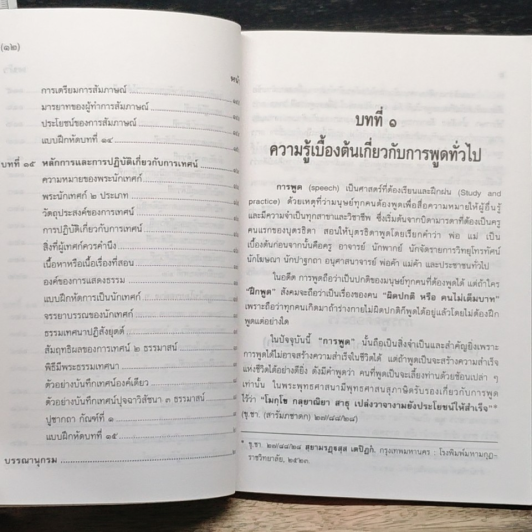 (๑๒)
หน้า
การเตรียมการสัมภาษณ์
มารยาทของผู้ทำการสัมภาษณ์
ประโยชน์ของการสัมภาษณ์
แบบฝึกหัดบทที่ ๑๔
บทที่ ๑๕ หลักการและการปฏิบัติเกี่ยวกับการเทศน์
ความหมายของพระนักเทศก์
พระนักเทศก์ ๒ ประเภท
วัตถุประสงค์ของการเทศน์
การปฏิบัติเกี่ยวกับการเทศน์
สิ่งที่ผู้เทศก์ควรคำนึง
เนื้อหาหรือเนื้อเรื่องที่สอน
องค์ของการแสดงธรรม
แบบฝึกหัดการเป็นนักเทศก์
จรรยาบรรณของนักเทศก์
ธรรมเทศนาปฏิสังยุตต์
สัมฤทธิผลของการเทศน์ ๒ ธรรมาสน์
พิธีมีพระธรรมเทศนา
ตัวอย่างบันทึกเทศน์องค์เดียว
ตัวอย่างบันทึกเทศน์ปุจฉาวิสัชนา ๓ ธรรมาสน์
ปูชากถา กัณฑ์ที่ ๑
แบบฝึกหัดบทที่ ๑๕
บรรณานุกรม
บทที่ ๑
ความรู้เบื้องต้นเกี่ยวกับการพูดทั่วไป
การพูด (speech) เป็นศาสตร์ที่ต้องเรียนและฝึกฝน (Study and
practice) ด้วยเหตุที่ว่ามนุษย์ทุกคนต้องพูดเพื่อสื่อความหมายให้ผู้อื่นรู้
และมีความจำเป็นทุกสาขาและวิชาชีพ ซึ่งเริ่มต้นจากบิดามารดาที่ต้องเป็นครู
คนแรกของบุตรธิดา สอนให้บุตรธิดาพูดโดยเรียกคำว่า พ่อ แม่ เป็น
เบื้องต้นก่อนจากนั้นคือครู อาจารย์ นักพากย์ นักจัดรายการวิทยุโทรทัศน์
นักโฆษณา นักปาฐกถา อนุศาสนาจารย์ พ่อค้า แม่ค้า และประชาชนทั่วไป
ในอดีต การพูดถือว่าเป็นปกติของมนุษย์ทุกคนที่ต้องพูดได้ แต่ถ้าใคร
"ฝึกพูด" สังคมจะถือว่าเป็นเรื่องของคน "ผิดปกติ หรือ คนไม่เต็มบาท"
เพราะถือว่าทุกคนเกิดมาถ้าร่างกายไม่ผิดปกติก็พูดได้อยู่แล้วโดยไม่ต้องฝึก
พูดแต่อย่างใด
ในปัจจุบันนี้ "การพูด" นั้นถือเป็นสิ่งจำเป็นและสำคัญยิ่งเพราะ
การพูดได้ไม่อาจสร้างความสำเร็จในชีวิตได้ แต่ถ้าพูดเป็นจะสร้างความสำเร็จ
แห่งชีวิตได้อย่างดียิ่ง ดังมีคำพูดว่า คนที่พูดเป็นจะเลี้ยงท่านด้วยช้อนเปล่า ๆ
เท่านั้น ในพระพุทธศาสนามีพุทธศาสนสุภาษิตรับรองเกี่ยวกับการพูด
ไว้ว่า "โมกฺโข กลฺยาณิยา สาธุ เปล่งวาจางามยังประโยชน์ให้สำเร็จ"*
(ขุ.ชา. (สารัมภชาดก) ๒๗/๘๘/๒๘)
* ขุ.ชา. ๒๗/๘๘/๒๘ สฺยามรฏฺฐสฺส เตปิฏกํ. กรุงเทพมหานคร : โรงพิมพ์มหามกุฏ-
ราชวิทยาลัย, ๒๕๒๓.